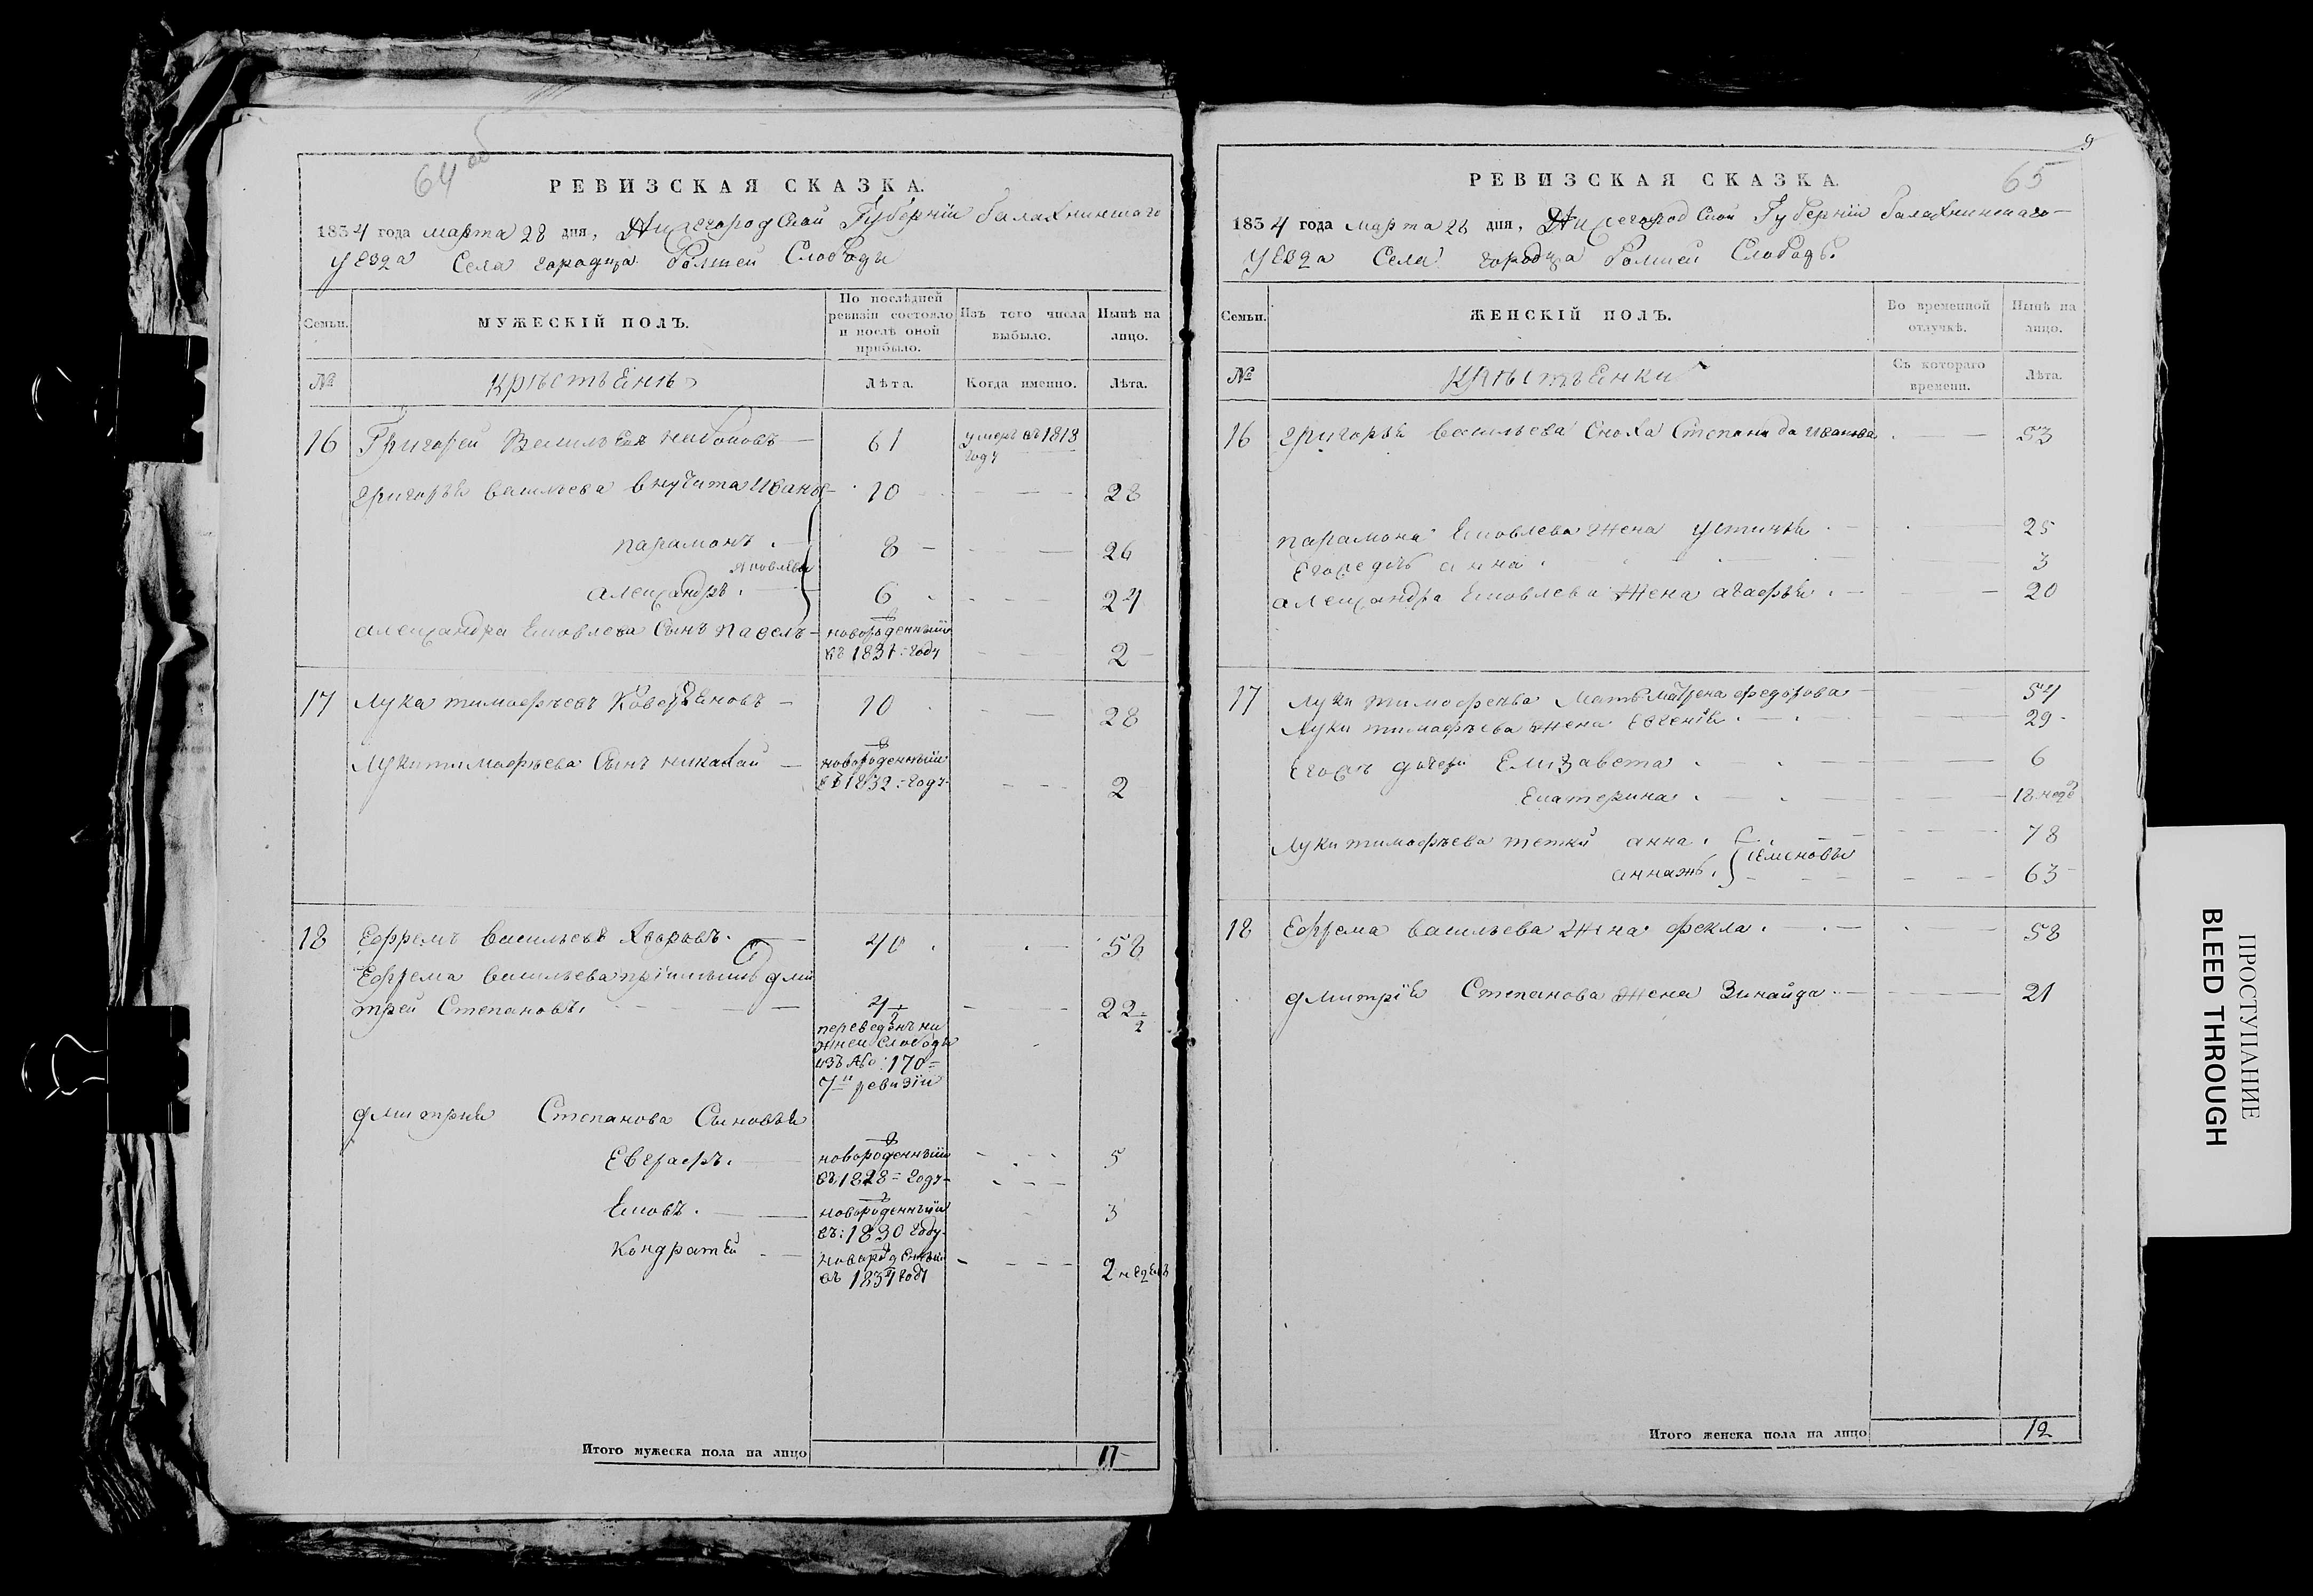 64 об
РЕВИЗСКАЯ СКАЗКА.
1834 года марта 28 дня, Нижегородской Губерніи балахнинскаго
уезда Села городца болшей Слободы
Семьи. МУЖЕСКІЙ ПОЛЪ. По послѣдней ревизіи состояло и послѣ оной прибыло. Изъ того числа выбыло. Нынѣ на лицо.
№ крѣстьѣнѣ Лѣта. Когда именно. Лѣта.
16 Григорей Васильевъ 61 умеръ въ 1818
году
григорья васильева внучата Иванъ 10 28
парамонъ 8 26
Яковлевы
александръ 6 24
александра Яковлева Сынъ павелъ новорожденный
въ 1831 году 2
17 Лука тимофѣевъ 10 28
Луки тимофѣева Сынъ николай новорожденный
въ 1832 году 2
18 Ефремъ васильевъ 40 58
Ефрема васильева пріимышъ дми
трей Степановъ 4 1/2 22 1/2
переведенъ ни
жней слободы
изъ 170
7й ревизіи
дмитрия Степанова Сыновья
Евграфъ новорожденный 5
въ 1828 году
Яковъ новорожденный 3
въ 1830 году
Кондратей новорожденный
въ 1834 году 2 недели
Итого мужеска пола на лицо 11
9
65
РЕВИЗСКАЯ СКАЗКА.
1834 года марта 28 дня, Нижегородской Губерніи балахнинскаго
уезда Села городца болшей Слободы
Семьи. ЖЕНСКІЙ ПОЛЪ. Во временной отлучкѣ. Нынѣ на лицо.
№ крѣстьѣнки Съ котораго времени. Лѣта.
16 григорья васильева сноха Степанида иванова 53
парамона Яковлева жена устинья 25
Егождочь анна 3
александра Яковлева Жена агафья 20
17 Луки тимофеева Мать Матрена федорова 54
Луки тимофѣева жена Евгенія 29
Егожъ дочери Елизавета 6
Екатерина 18 неде
Луки тимофѣева тетки анна 78
Семеновы
аннажъ 63
18 Ефрема васильева жена фекла 58
дмитрія Степанова жена Зинайда 21
Итого женска пола на лицо 12
ПРОСТУПАНИЕ
BLEED THROUGH